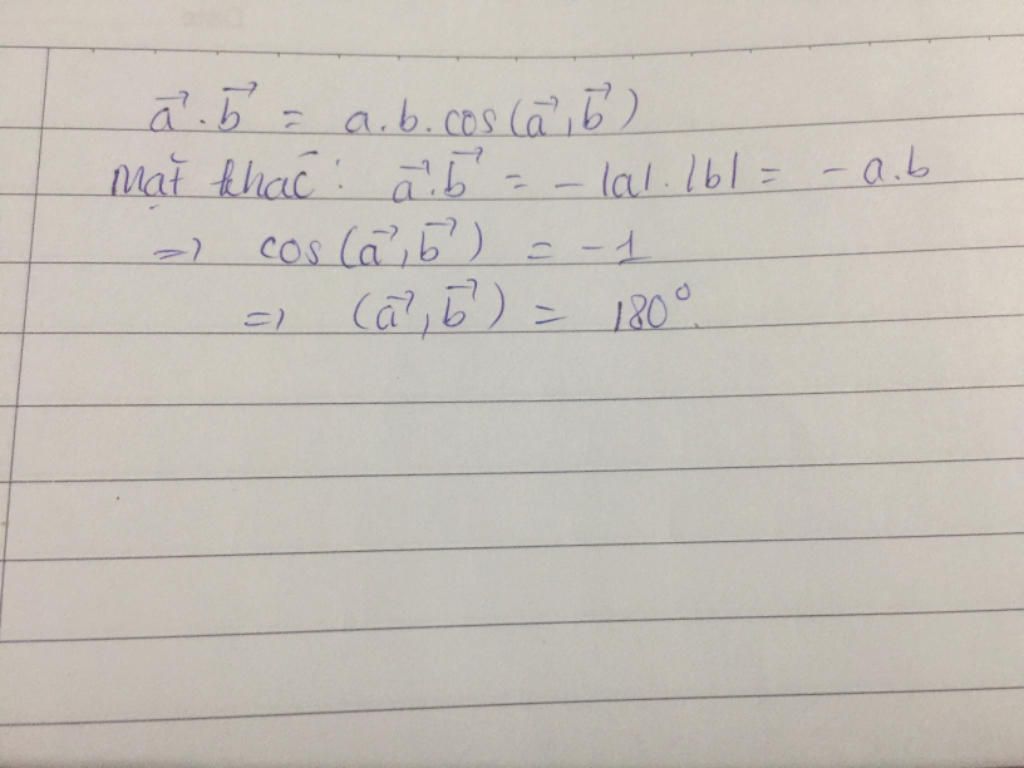 a⃗.b⃗ = a.b.cos(a⃗,b⃗)
Mặt khác: a⃗.b⃗ = -|a|.|b| = -a.b
=> cos(a⃗,b⃗) = -1
=> (a⃗,b⃗) = 180°.